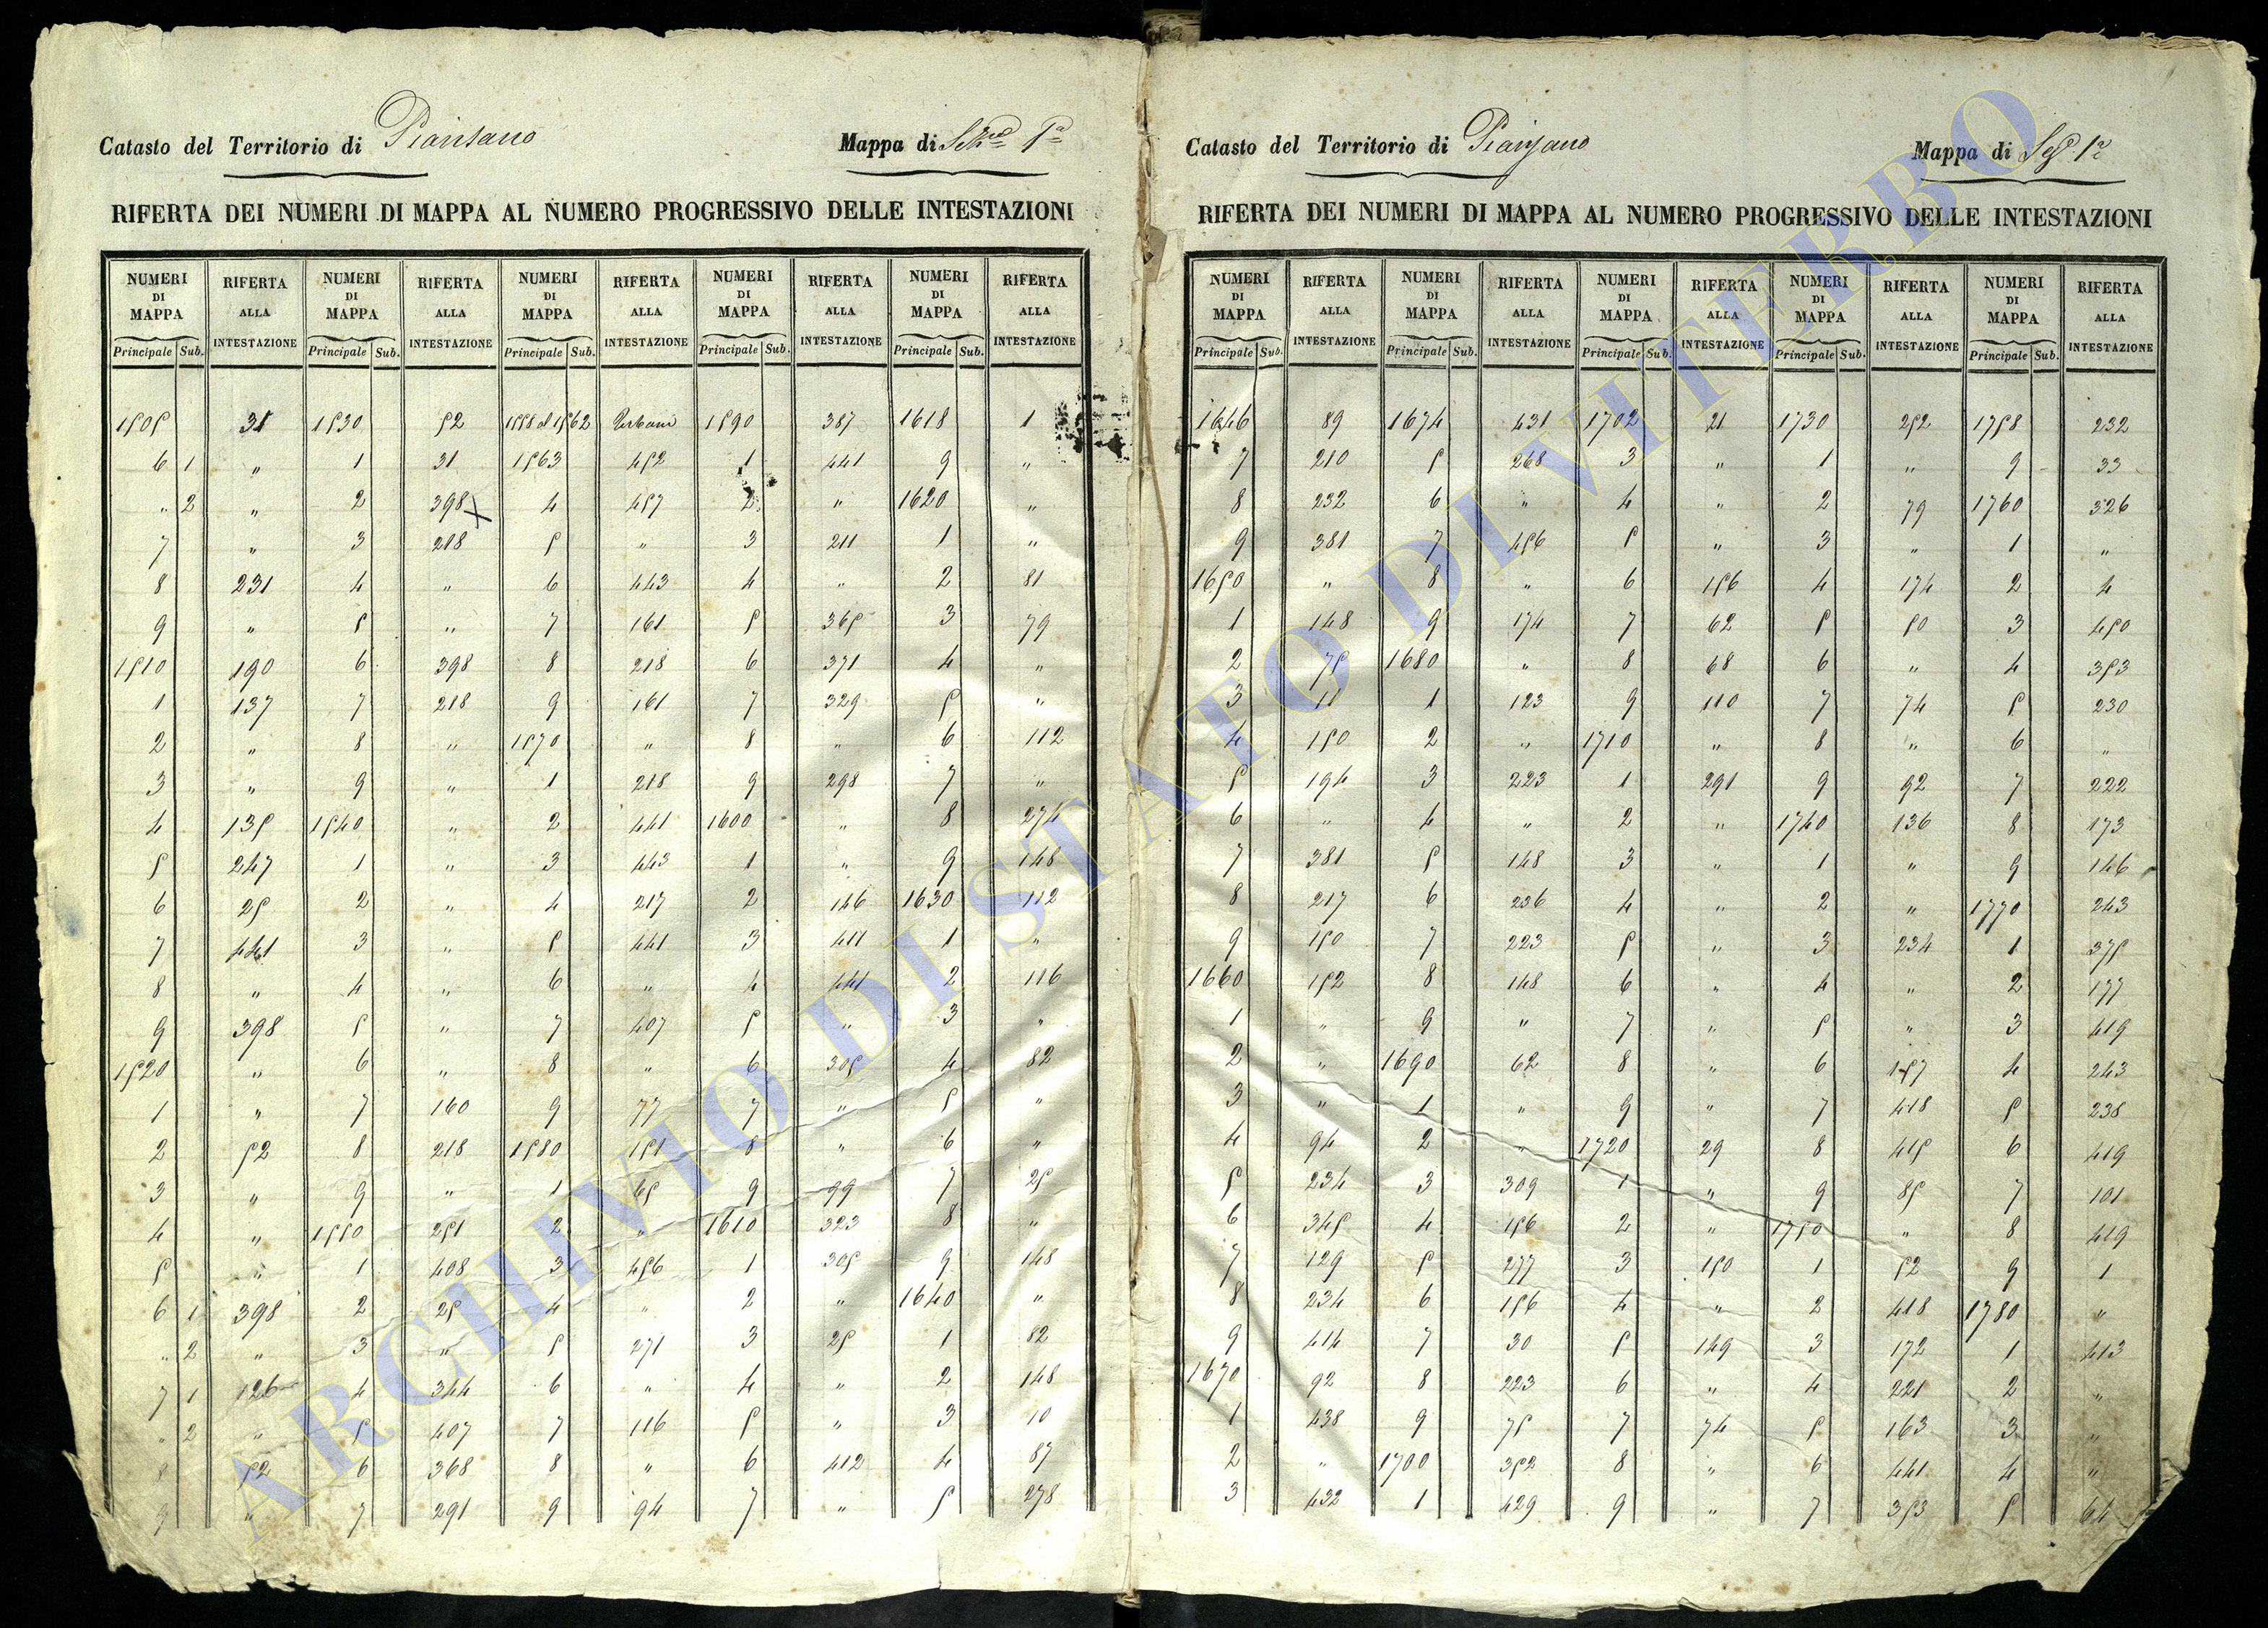 Catasto del Territorio di Piansano Mappa di Sez.ne P.a
RIFERTA DEI NUMERI DI MAPPA AL NUMERO PROGRESSIVO DELLE INTESTAZIONI
NUMERI DI MAPPA RIFERTA ALLA INTESTAZIONE NUMERI DI MAPPA RIFERTA ALLA INTESTAZIONE NUMERI DI MAPPA RIFERTA ALLA INTESTAZIONE NUMERI DI MAPPA RIFERTA ALLA INTESTAZIONE NUMERI DI MAPPA RIFERTA ALLA INTESTAZIONE
Principale Sub. Principale Sub. Principale Sub. Principale Sub. Principale Sub.
1505 31 1530 52 1558 al 1562 Urbani 1590 387 1618 1
6 1 " 1 31 1563 452 1 441 9 "
" 2 " 2 398 x 4 457 2 " 1620 "
7 " 3 218 5 " 3 211 1 "
8 231 4 " 6 443 4 " 2 81
9 " 5 " 7 161 5 365 3 79
1510 190 6 398 8 218 6 371 4 "
1 137 7 218 9 161 7 329 5 "
2 " 8 " 1570 " 8 " 6 112
3 " 9 " 1 218 9 298 7 "
4 135 1540 " 2 441 1600 " 8 274
5 247 1 " 3 443 1 " 9 148
6 25 2 " 4 217 2 146 1630 112
7 441 3 " 5 441 3 411 1 "
8 " 4 " 6 " 4 441 2 116
9 398 5 " 7 407 5 " 3 "
1520 " 6 " 8 " 6 305 4 82
1 " 7 160 9 77 7 " 5 "
2 52 8 218 1580 151 8 " 6 "
3 " 9 " 1 65 9 99 7 25
4 " 1550 251 2 " 1610 323 8 "
5 " 1 408 3 456 1 305 9 148
6 1 398 2 25 4 " 2 " 1640 "
" 2 " 3 " 5 271 3 25 1 82
7 1 126 4 344 6 " 4 " 2 148
" 2 " 5 407 7 116 5 " 3 10
8 52 6 368 8 " 6 412 4 87
9 " 7 291 9 94 7 " 5 278
Catasto del Territorio di Piansano Mappa di Sez. 1.a
RIFERTA DEI NUMERI DI MAPPA AL NUMERO PROGRESSIVO DELLE INTESTAZIONI
NUMERI DI MAPPA RIFERTA ALLA INTESTAZIONE NUMERI DI MAPPA RIFERTA ALLA INTESTAZIONE NUMERI DI MAPPA RIFERTA ALLA INTESTAZIONE NUMERI DI MAPPA RIFERTA ALLA INTESTAZIONE NUMERI DI MAPPA RIFERTA ALLA INTESTAZIONE
Principale Sub. Principale Sub. Principale Sub. Principale Sub. Principale Sub.
1646 89 1674 431 1702 21 1730 252 1758 232
7 210 5 268 3 " 1 " 9 33
8 232 6 " 4 " 2 79 1760 326
9 381 7 456 5 " 3 " 1 "
1650 " 8 " 6 156 4 174 2 4
1 148 9 174 7 62 5 50 3 450
2 75 1680 " 8 68 6 " 4 353
3 11 1 123 9 110 7 74 5 230
4 150 2 " 1710 " 8 " 6 "
5 194 3 223 1 291 9 92 7 222
6 " 4 " 2 " 1740 136 8 173
7 381 5 148 3 " 1 " 9 146
8 217 6 236 4 " 2 " 1770 243
9 150 7 223 5 " 3 234 1 375
1660 152 8 148 6 " 4 " 2 177
1 " 9 " 7 " 5 " 3 419
2 " 1690 62 8 " 6 157 4 243
3 " 1 " 9 " 7 418 5 238
4 94 2 " 1720 29 8 415 6 419
5 234 3 309 1 " 9 85 7 101
6 345 4 156 2 " 1750 " 8 419
7 129 5 277 3 150 1 52 9 1
8 234 6 156 4 " 2 418 1780 "
9 414 7 30 5 149 3 172 1 413
1670 92 8 223 6 " 4 221 2 "
1 438 9 75 7 74 5 163 3 "
2 " 1700 352 8 " 6 441 4 "
3 432 1 429 9 " 7 353 5 64
ARCHIVIO DI STATO DI VITERBO